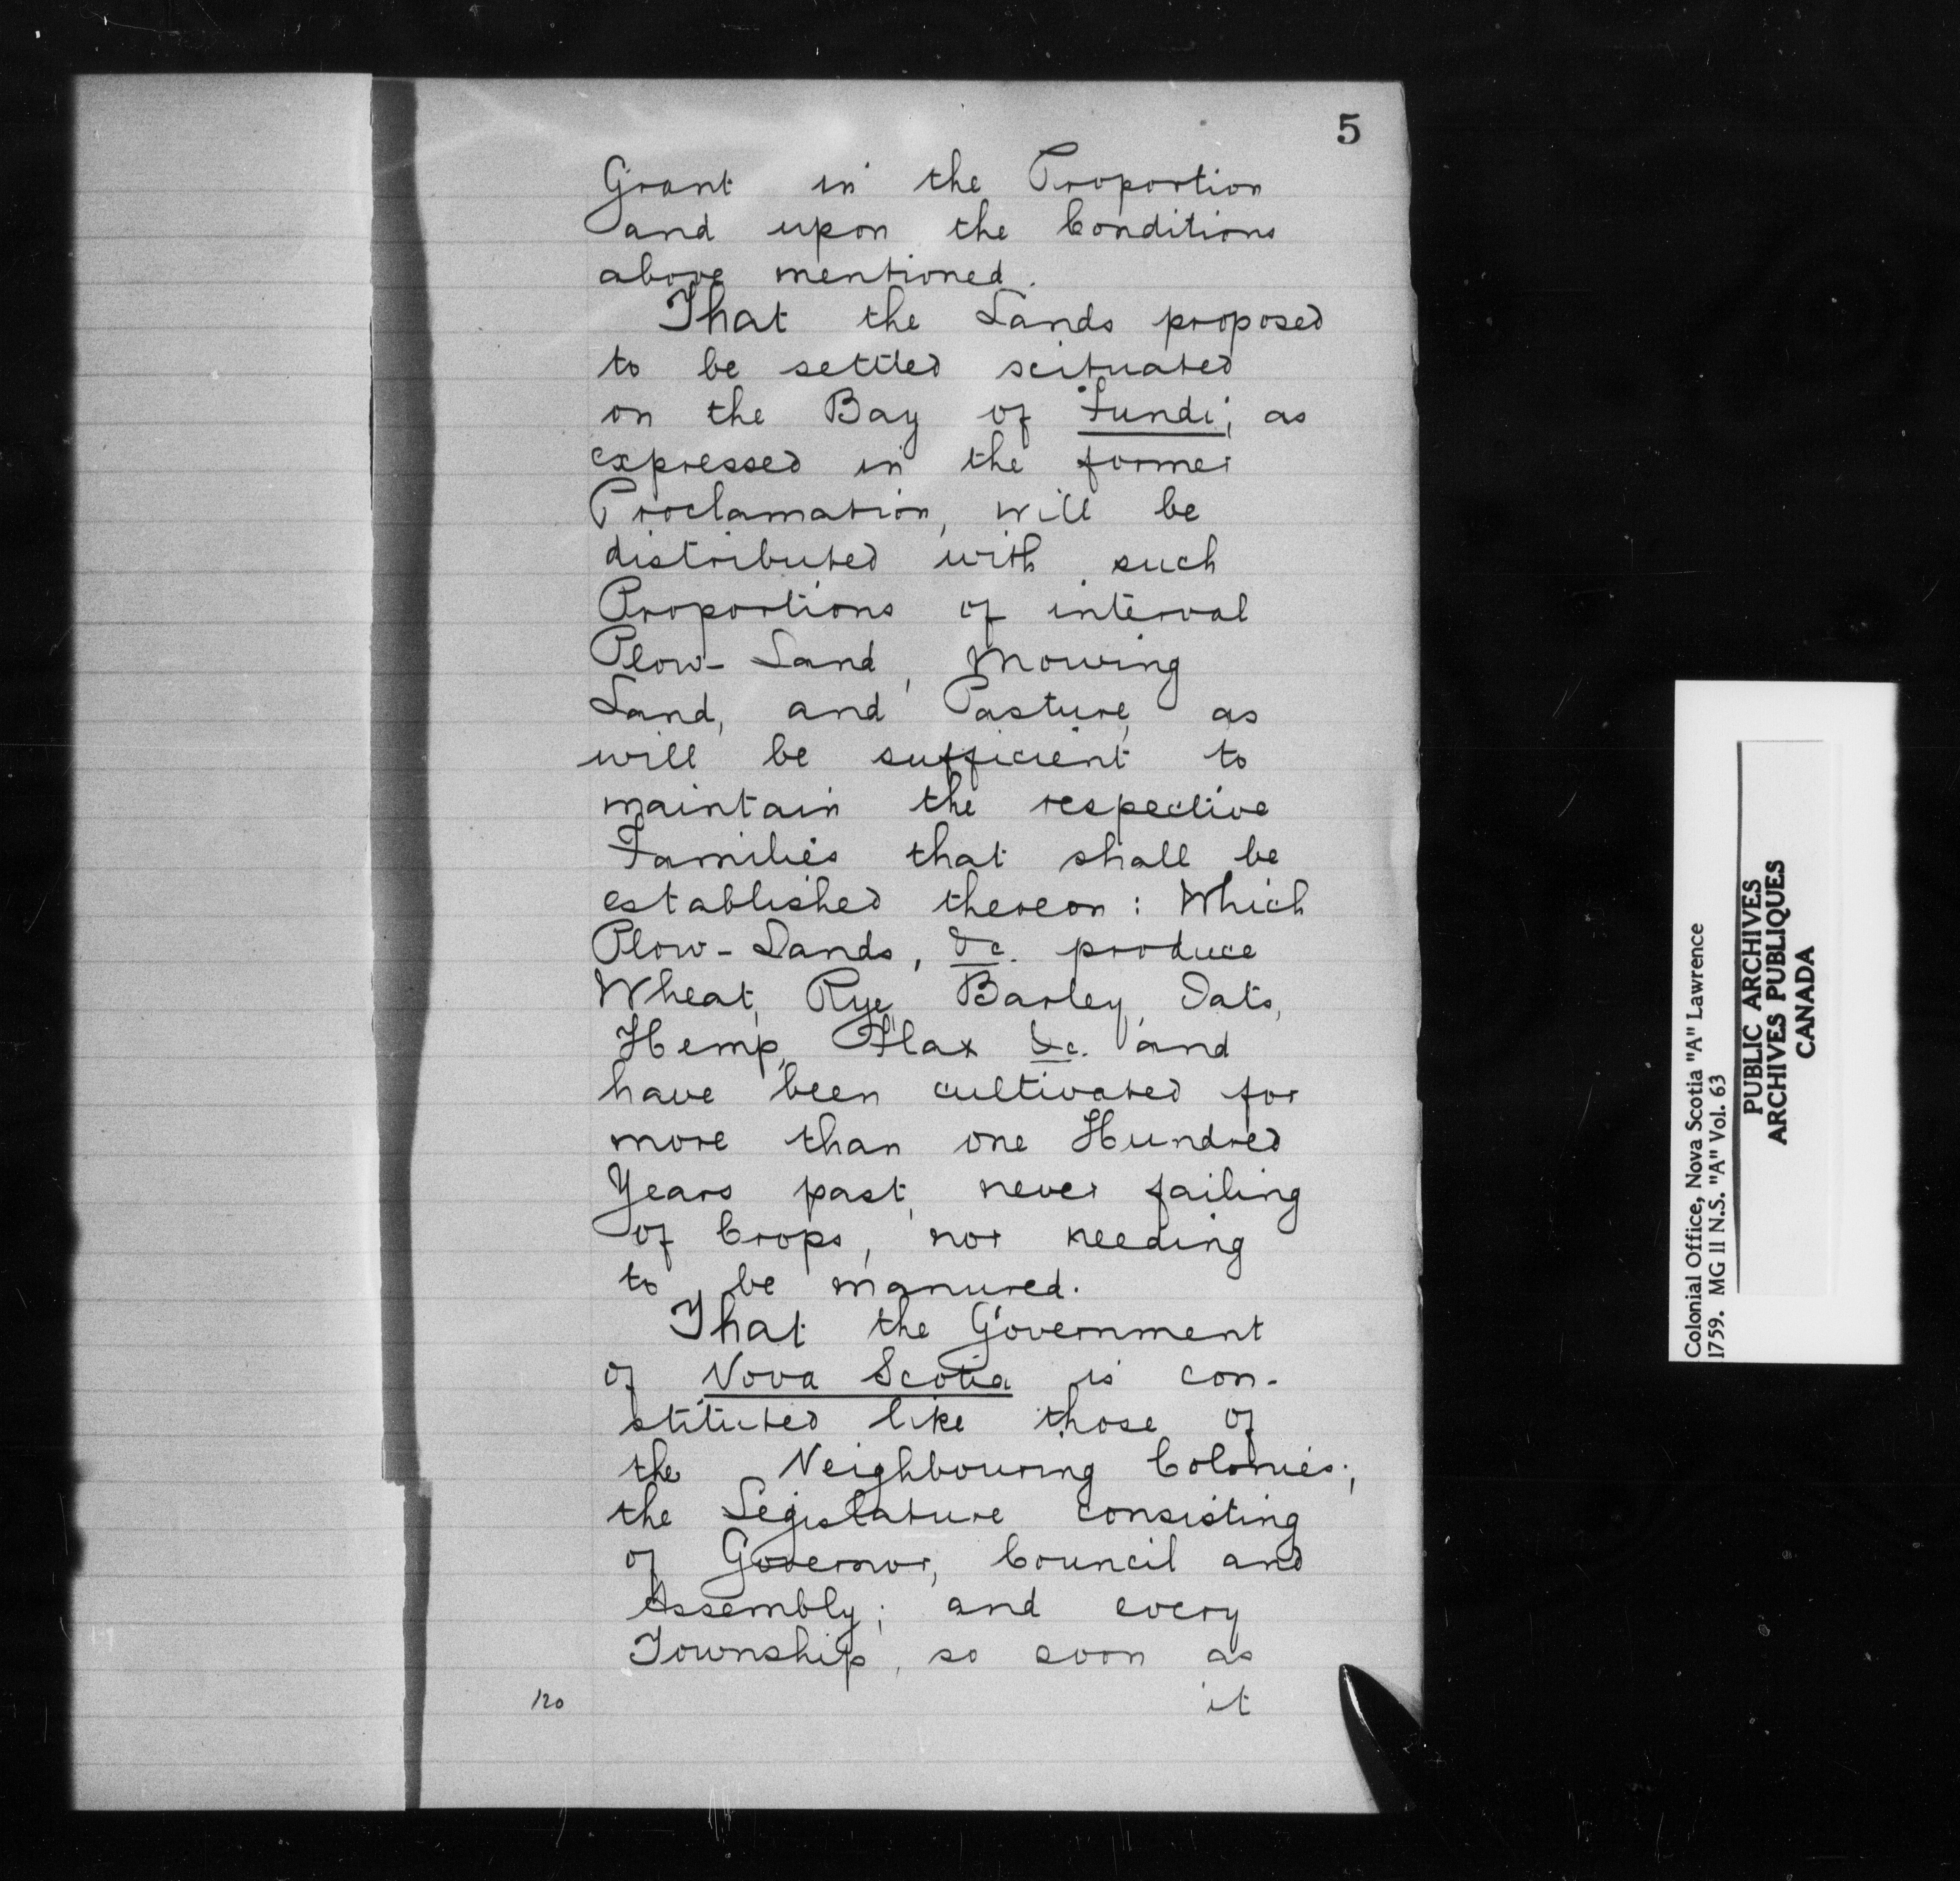 5
Grant in the Proportion
and upon the Conditions
above mentioned.
That the Lands proposed
to be settled scituated
on the Bay of Fundi; as
expressed in the former
Proclamation, will be
distributed with such
Proportions of interval
Plow-Land, Mowing
Land, and Pasture, as
will be sufficient to
maintain the respective
Families that shall be
established thereon: Which
Plow-Lands, &c. produce
Wheat, Rye, Barley, Oats,
Hemp, Flax &c. and
have been cultivated for
more than one Hundred
Years past, never failing
of Crops, nor needing
to be manured.
That the Government
of Nova Scotia is con-
stituted like those of
the Neighbouring Colonies;
the Legislature consisting
of Governor, Council and
Assembly; and every
Township, so soon as
120
it
Colonial Office, Nova Scotia "A" Lawrence
1759. MG 11 N.S. "A" Vol. 63
PUBLIC ARCHIVES
ARCHIVES PUBLIQUES
CANADA